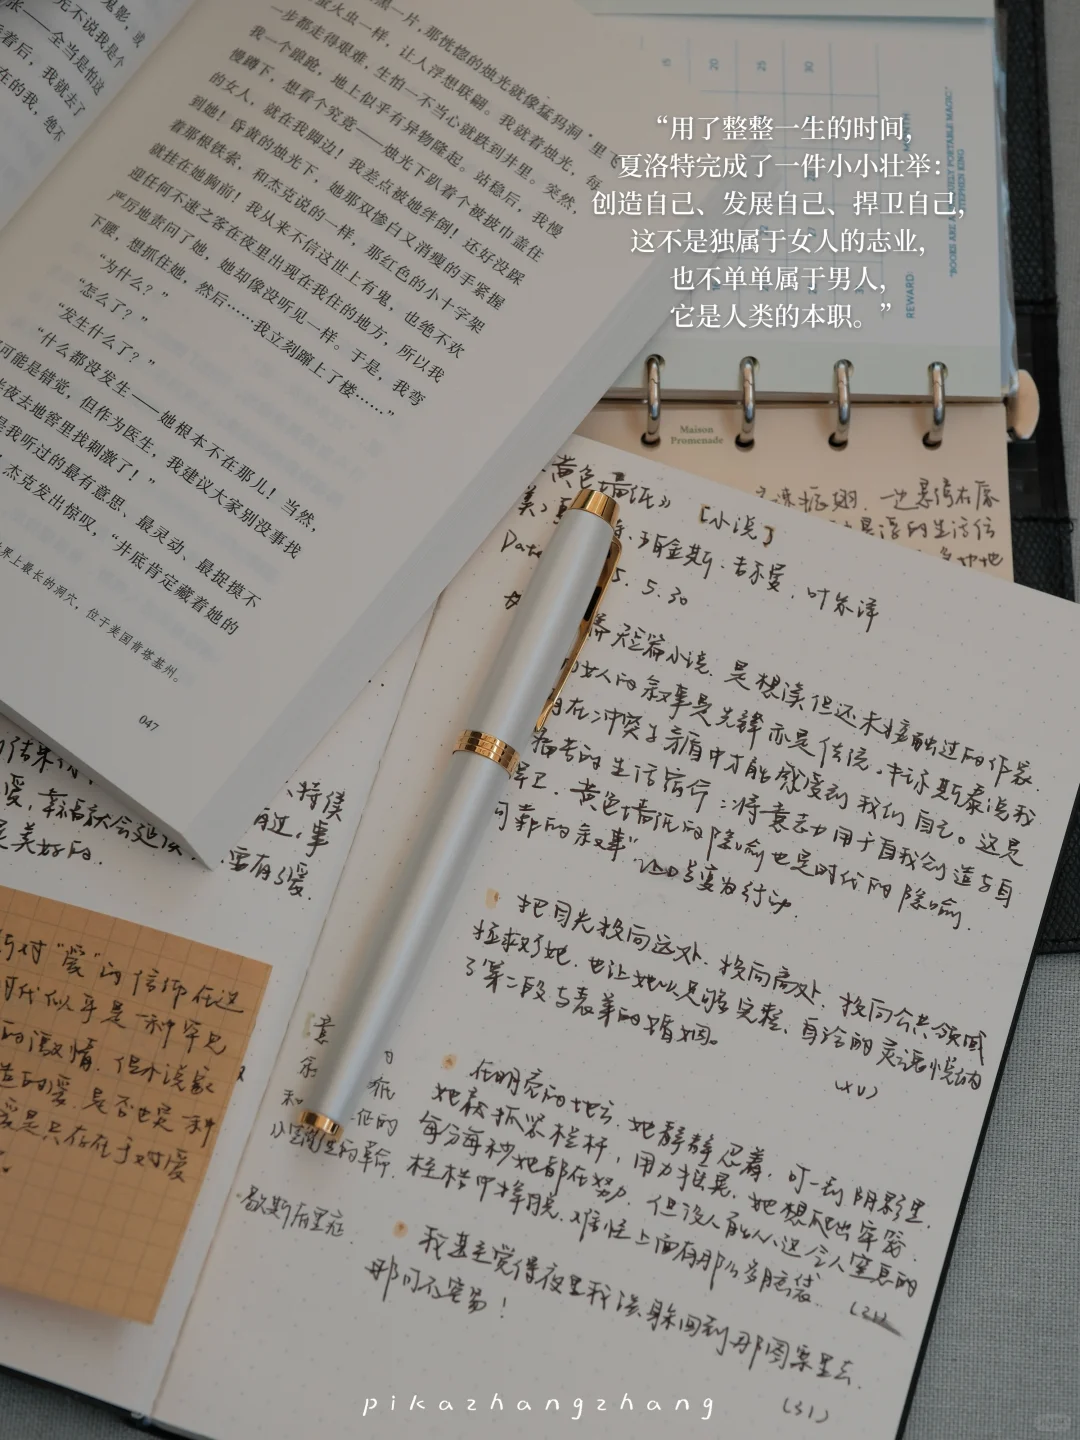 “用了整整一生的时间，
夏洛特完成了一件小小壮举：
创造自己、发展自己、捍卫自己，
这不是独属于女人的志业，
也不单单属于男人，
它是人类的本职。”
黑一片，那恍惚的烛光就像猛犸洞*里飞
萤火虫一样，让人浮想联翩。我就着烛光，每
一步都走得艰难，生怕一不当心就跌到井里。突然，
我一个踉跄，地上似乎有异物隆起。站稳后，我慢
慢蹲下，想看个究竟——烛光下趴着个被披巾盖住
的女人，就在我脚边！我差点被她绊倒！还好没踩
到她！昏黄的烛光下，她那双惨白又消瘦的手紧握
着那根铁索，和杰克说的一样，那红色的小十字架
就挂在她胸前！我从来不信这世上有鬼，也绝不欢
迎任何不速之客在夜里出现在我住的地方，所以我
严厉地责问了她，她却像没听见一样。于是，我弯
下腰，想抓住她，然后……我立刻蹿上了楼……”
“为什么？”
“怎么了？”
“发生什么了？”
“什么都没发生——她根本不在那儿！当然，
可能是错觉，但作为医生，我建议大家别没事找
半夜去地窖里找刺激了！”
是我听过的最有意思、最灵动、最捉摸不
！杰克发出惊叹，“井底肯定藏着她的
界上最长的洞穴，位于美国肯塔基州。
047
鬼影，或
死不说我是个
张——全当是怕这
着后，我就去了
在的我，绝不
15
20
25
30
REWARD
MONTH
"BOOKS ARE A UNIQUELY PORTABLE MAGIC."
STEPHEN KING
Maison
Promenade
黄色墙纸》 [小说]
吉尔曼．叶朱译
Date
5.5.30
短篇小说．是想读但还未接触过的作家．
女人的叙事是先锋亦是传统．卡尔斯泰说我
在冲突与矛盾中才能感受到我们自己。这是
的生活信行：将意志力用于自我创造与自
卫．黄色墙纸的隐喻也是时代的隐喻．
可靠的叙事”让思考变为行动．
把目光投向远处．投向高处．投向公共领域
拯救了她．也让她以足够完整、自洽的灵魂接纳
了第二段与表弟的婚姻。
(XV)
在明亮的地方．她静静忍着．可一到阴影里．
她就抓紧栏杆，用力摇晃．她想爬出牢笼．
每分每秒她都在努力．但没人能从这令人窒息的
桎梏中挣脱．难怪上面有那么多脑袋．
(21)
我甚至觉得夜里我该躲回到那图案里去．
那可不容易！
(31)
歇斯底里症．
对“爱”的信仰在这
时代似乎是一种罕见
的激情．但小说家
的爱．是否也是一种
爱是只存在于对爱
是美好的．
pikazhangzhang